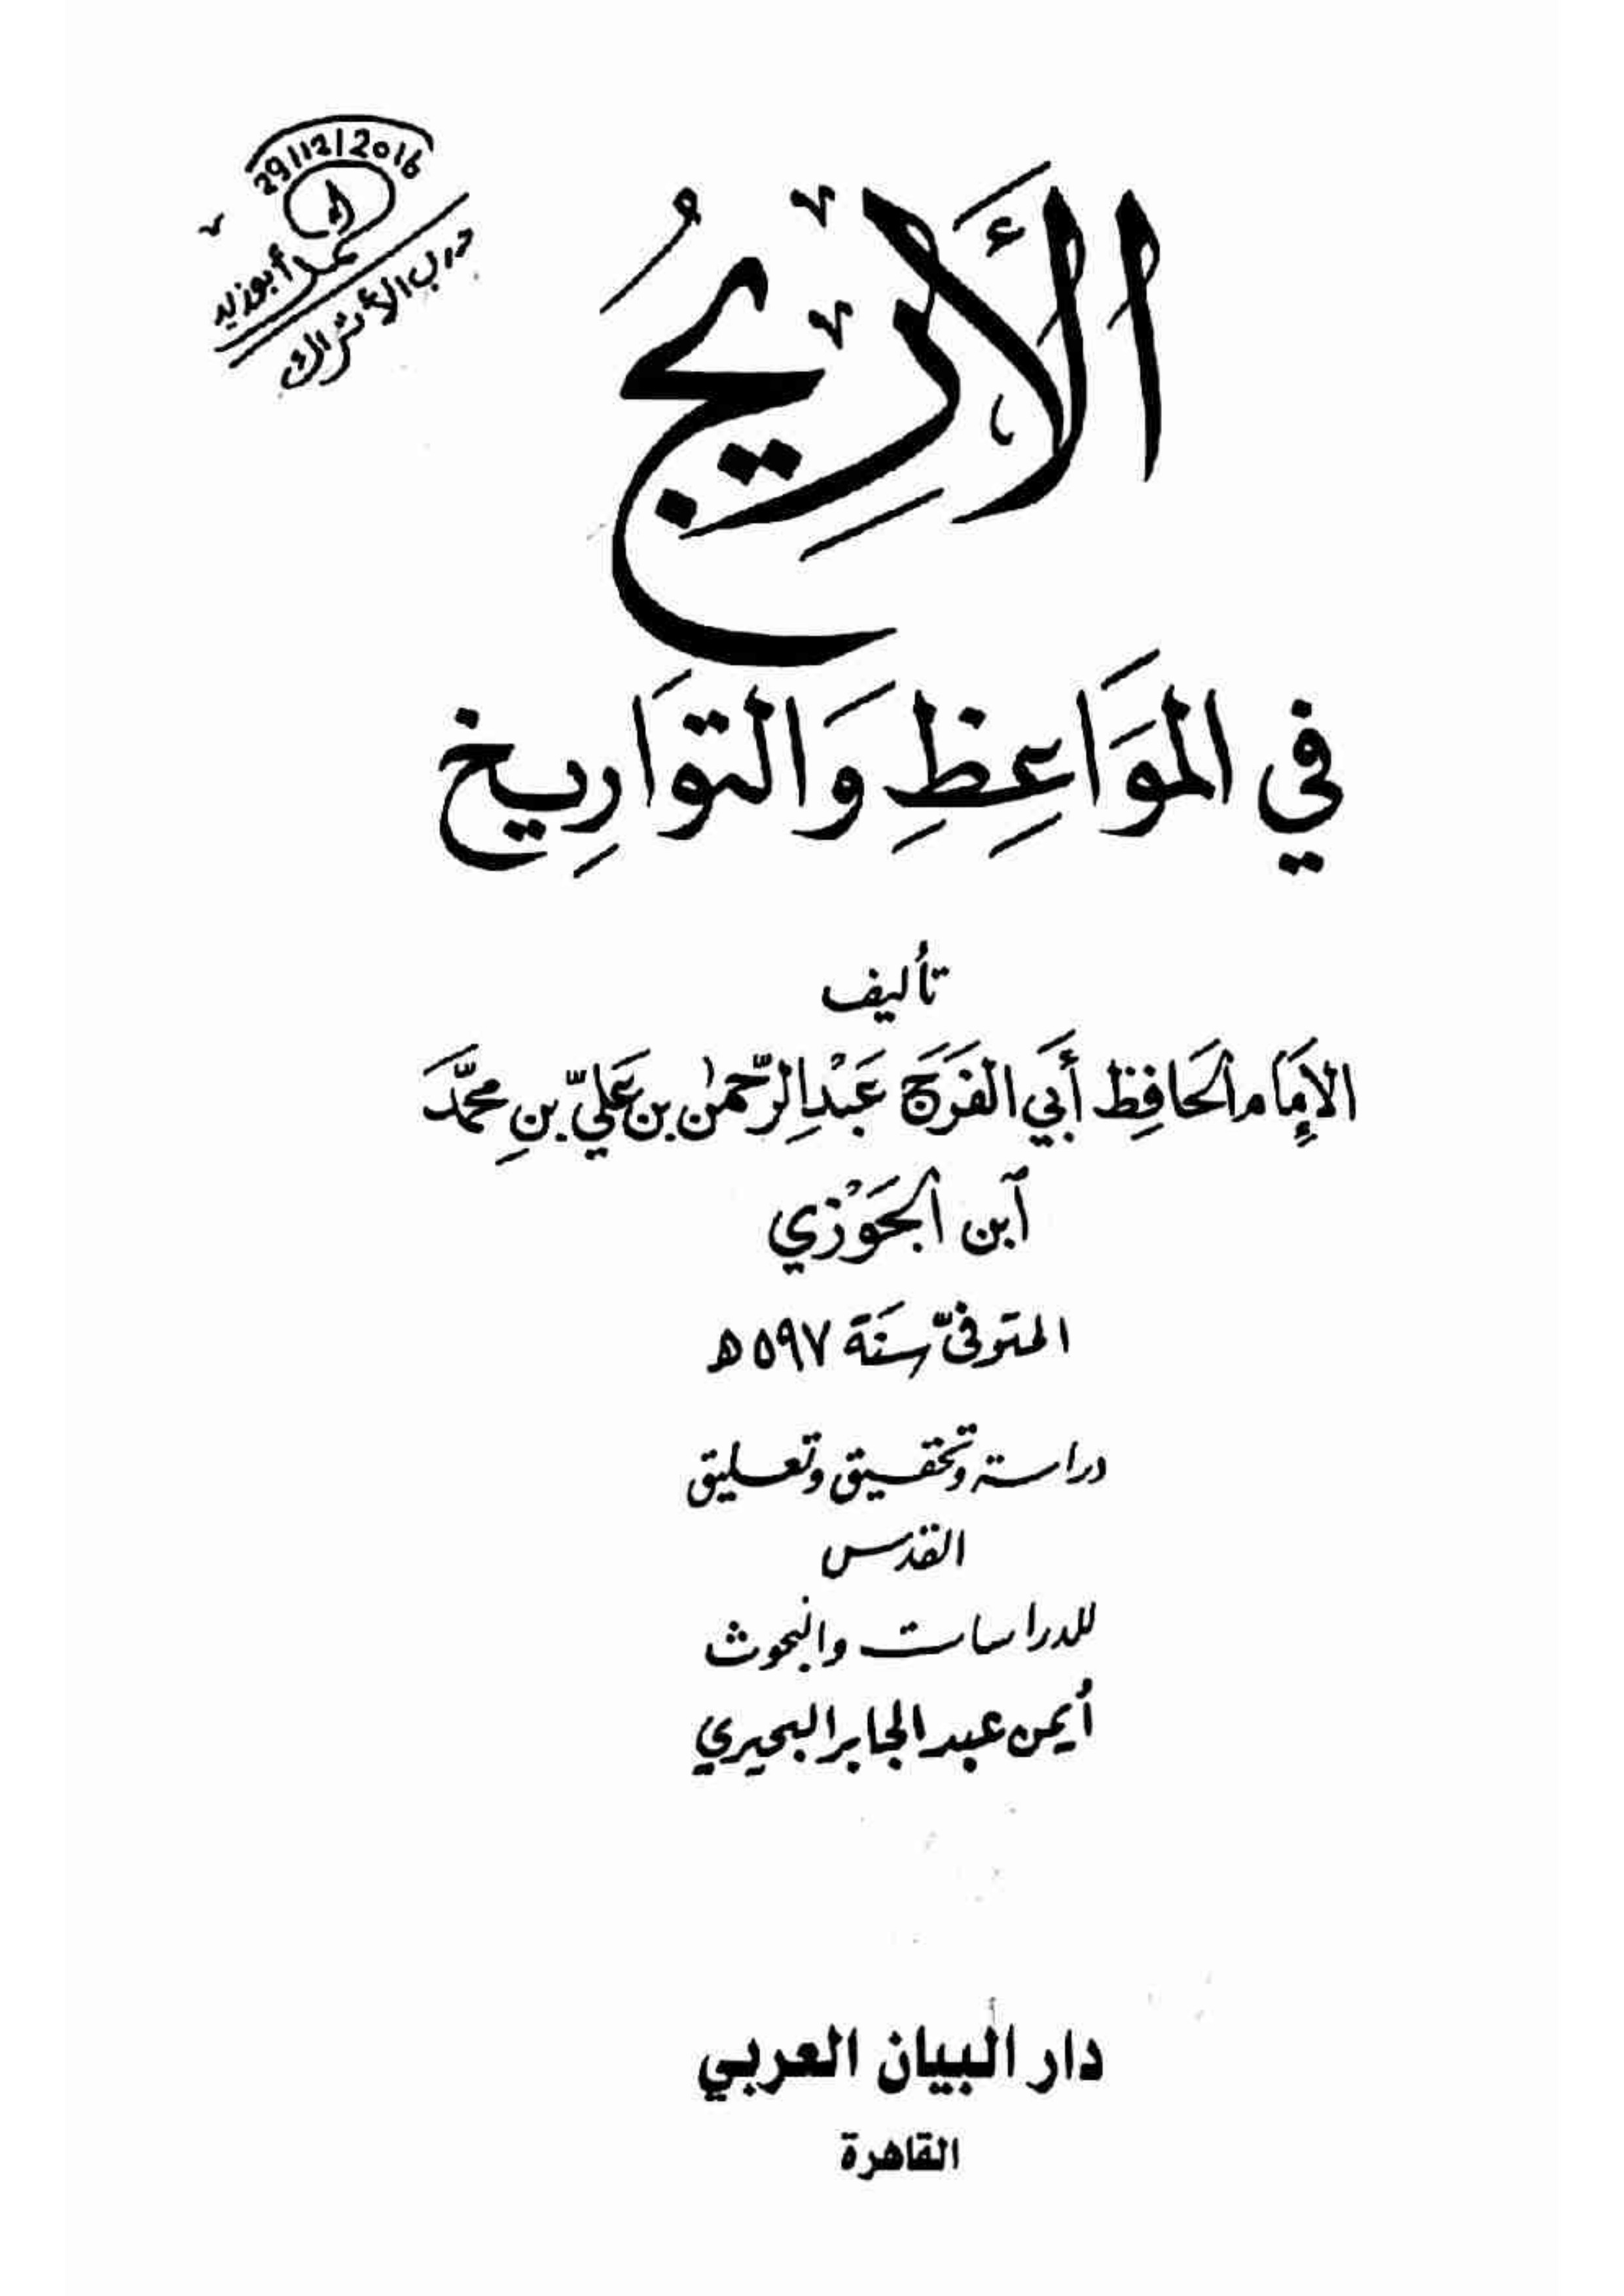 29/12/2016
محمد أبوزيد
درب الأتراك
الأَرِيجُ
في المَوَاعِظِ وَالتوَارِيخ
تأليف
الإِمَام الحَافِظ أَبي الفَرَج عَبْدِ الرَّحمٰن بن عَليّ بنِ محمَّد
ابن الجَوْزي
المتوفىّ سَنَة ٥٩٧ ه
دراسة وتحقيق وتعليق
القدس
للدراسات والبحوث
أيمن عبد الجابر البحيري
دار البيان العربي
القاهرة